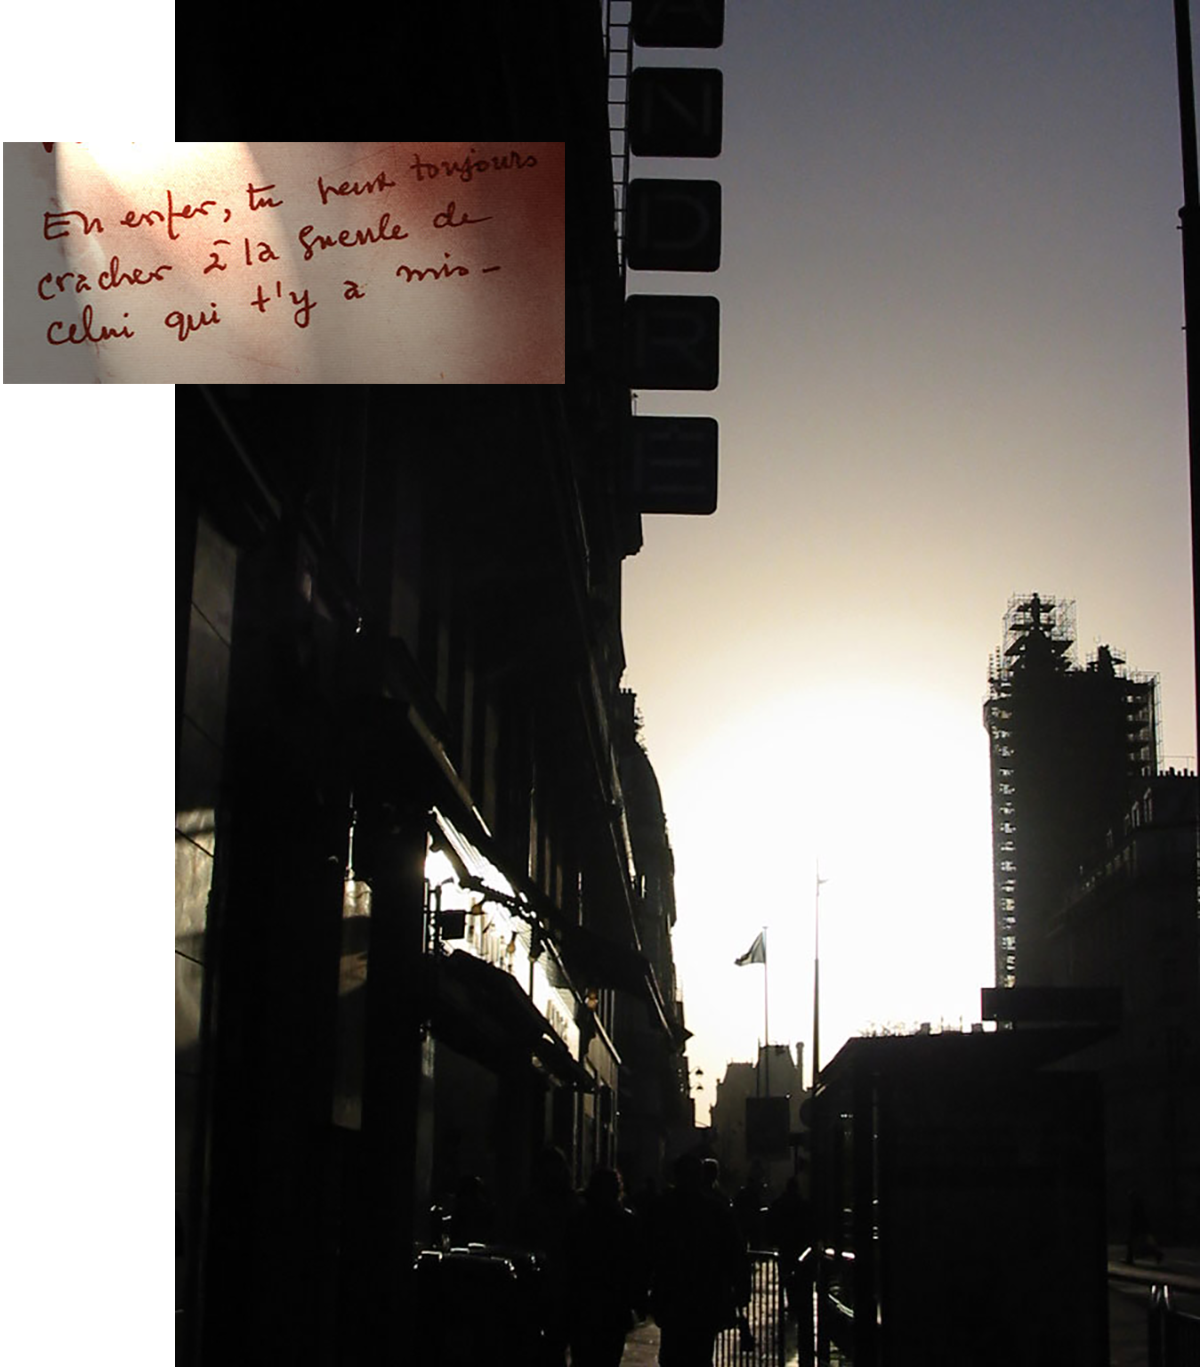 En enfer, tu peux toujours
cracher à la gueule de
celui qui t'y a mis -
A
N
D
R
E